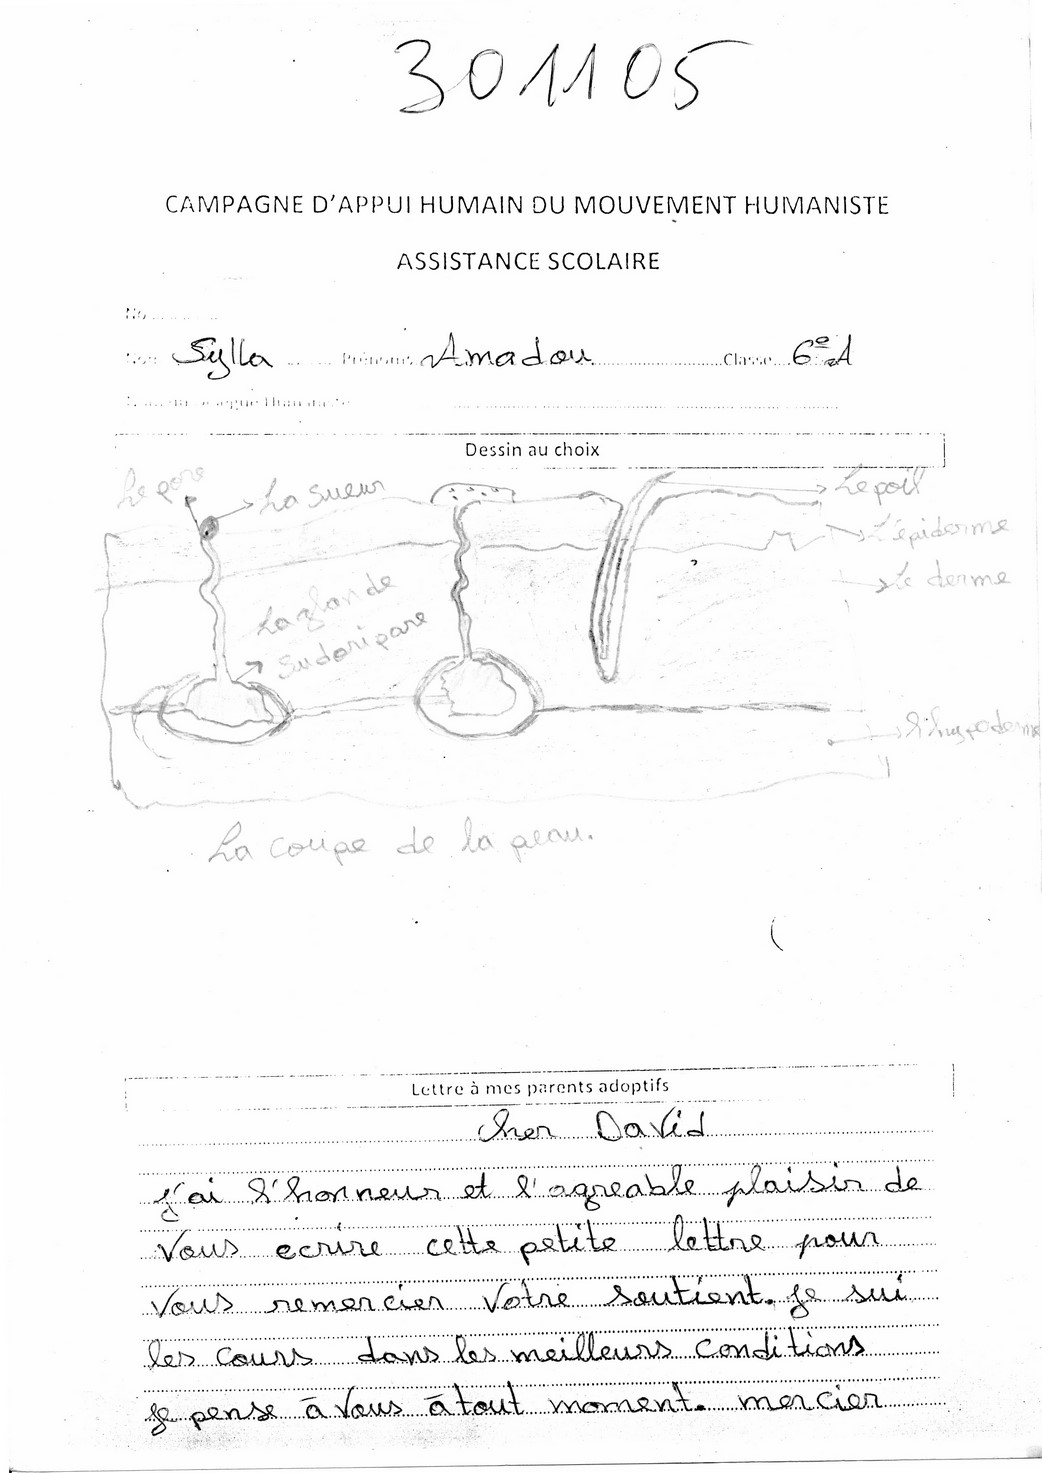 301105
CAMPAGNE D'APPUI HUMAIN DU MOUVEMENT HUMANISTE
ASSISTANCE SCOLAIRE
No
Nom Sylla Prénoms Amadou Classe 6e A
Humaniste
Dessin au choix
Le pore
La sueur
Le poil
L'épiderme
Le derme
La glande
sudoripare
L'hypoderme
La coupe de la peau.
Lettre à mes parents adoptifs
Cher David
j'ai l'honneur et l'agreable plaisir de
Vous ecrire cette petite lettre pour
Vous remercier Votre soutient. je sui
les cours dans les meilleurs conditions
je pense à Vous à tout moment. mercier